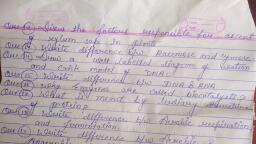 Que (12) Given the factors responsible for ascent
of xylem sap in plants
Que (13) Write difference b/w Racemose and cymose
Que (14) Draw a well labelled diagram of Watson
and Crick model of DNA.
Que (15) Write difference b/w DNA & RNA
Que (16) Why Enzymes are called biocatalysts?
Que (17) What is meant by tertiary structure
of protein?
Que (18) Write difference b/w Aerobic respiration
and fermentation.
Que (19) Write difference b/w